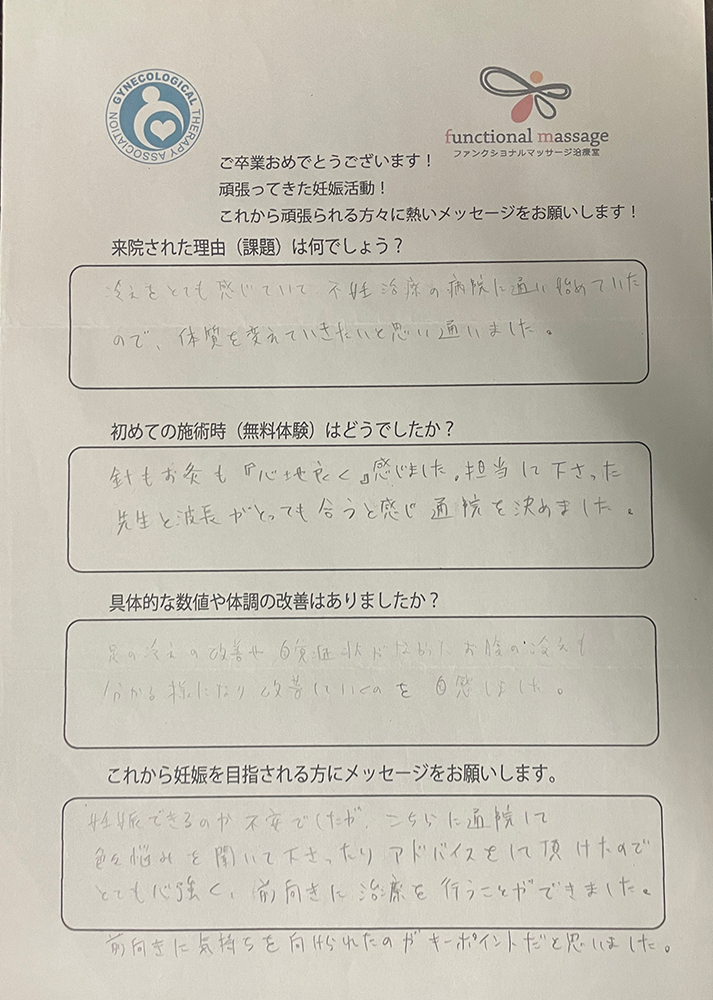 GYNECOLOGICAL THERAPY ASSOCIATION
functional massage
ファンクショナルマッサージ治療室
ご卒業おめでとうございます！
頑張ってきた妊娠活動！
これから頑張られる方々に熱いメッセージをお願いします！
来院された理由（課題）は何でしょう？
冷えをとても感じていて 不妊治療の病院に通い始めていた
ので、体質を変えていきたいと思い通いました。
初めての施術時（無料体験）はどうでしたか？
針もお灸も『心地良く』感じました。担当して下さった
先生と波長がとっても合うと感じ 通院を決めました。
具体的な数値や体調の改善はありましたか？
足の冷えの改善や 自覚症状がなかった お腹の冷えも
分かる様になり 改善していくのを 自感しました。
これから妊娠を目指される方にメッセージをお願いします。
妊娠できるのか不安でしたが、こちらに通院して
色々悩みを聞いて下さったり アドバイスをして頂けたので
とても心強く、前向きに治療を行うことができました。
前向きに気持ちを向けられたのがキーポイントだと思いました。